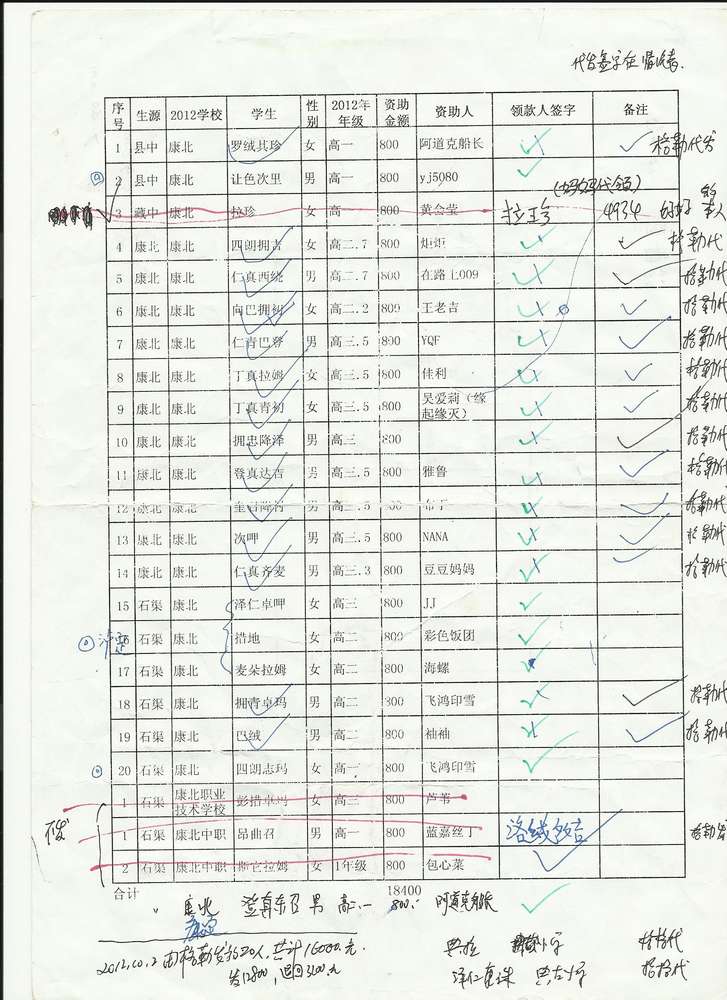 代签字在情况表.
序号 生源 2012学校 学生 性别 2012年年级 资助金额 资助人 领款人签字 备注
1 县中 康北 罗绒其珍 女 高一 800 阿道克船长 格勒代发
2 县中 康北 让色次里 男 高一 800 yj5080
(妈妈代领)
3 藏中 康北 拉珍 女 高一 800 黄会莹 拉珍 4934 本人
4 康北 康北 四朗拥吉 女 高二.7 800 炬炬 格勒代
5 康北 康北 仁真西绕 男 高二.7 800 在路上009 格勒代
6 康北 康北 向巴拥初 女 高二.2 800 王老吉 格勒代
7 康北 康北 仁青巴登 男 高三.5 800 YQF 格勒代
8 康北 康北 丁真拉姆 女 高三.5 800 佳利 格勒代
9 康北 康北 丁真青初 女 高三.5 800 吴爱莉（缘起缘灭） 格勒代
10 康北 康北 拥忠降泽 男 高三 800 格勒代
11 康北 康北 登真达吉 男 高三.5 800 雅鲁 格勒代
12 康北 康北 男 高三.5 800 布丁 格勒代
13 康北 康北 次呷 男 高三.5 800 NANA 格勒代
14 康北 康北 仁真齐麦 男 高三.3 800 豆豆妈妈 格勒代
15 石渠 康北 泽仁卓呷 女 高三 800 JJ
16 石渠 康北 措地 女 高二 800 彩色饭团
17 石渠 康北 麦朵拉姆 女 高二 800 海螺
18 石渠 康北 拥青卓玛 男 高二 800 飞鸿印雪 格勒代
19 石渠 康北 巴绒 男 高二 800 袖袖 格勒代
20 石渠 康北 四朗志玛 女 高一 800 飞鸿印雪
1 石渠 康北职业技术学校 彭措卓玛 女 高三 800 芦苇
不发 1 石渠 康北中职 昂曲召 男 高一 800 蓝嘉丝丁 洛绒多吉 格勒发
2 石渠 康北中职 拥它拉姆 女 1年级 800 包心菜
合计 18400
康北 登真东召 男 高一 800 阿道克船长
2012.10.2 由格勒发放20人,共计16000.元.
发12800,退回3200.元